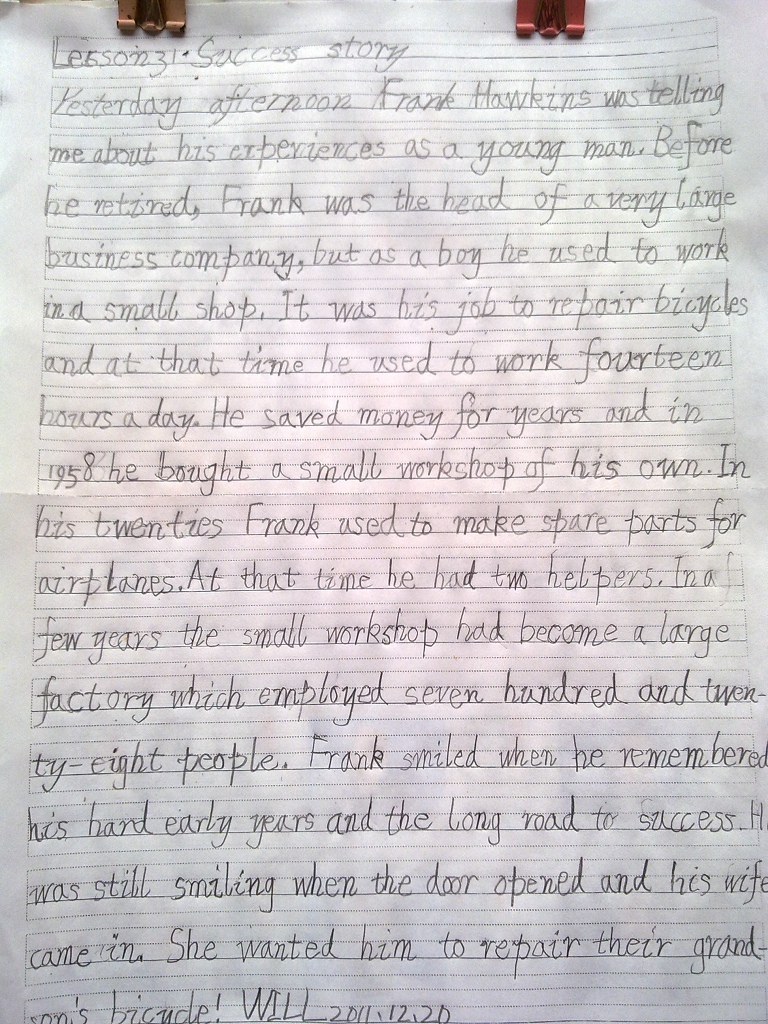 Lesson31. Success story
Yesterday afternoon Frank Hawkins was telling
me about his experiences as a young man. Before
he retired, Frank was the head of a very large
business company, but as a boy he used to work
in a small shop. It was his job to repair bicycles
and at that time he used to work fourteen
hours a day. He saved money for years and in
1958 he bought a small workshop of his own. In
his twenties Frank used to make spare parts for
airplanes. At that time he had two helpers. In a
few years the small workshop had become a large
factory which employed seven hundred and twen-
ty-eight people. Frank smiled when he remembered
his hard early years and the long road to success. H
was still smiling when the door opened and his wife
came in. She wanted him to repair their grand-
son's bicycle! WILL 2011.12.20